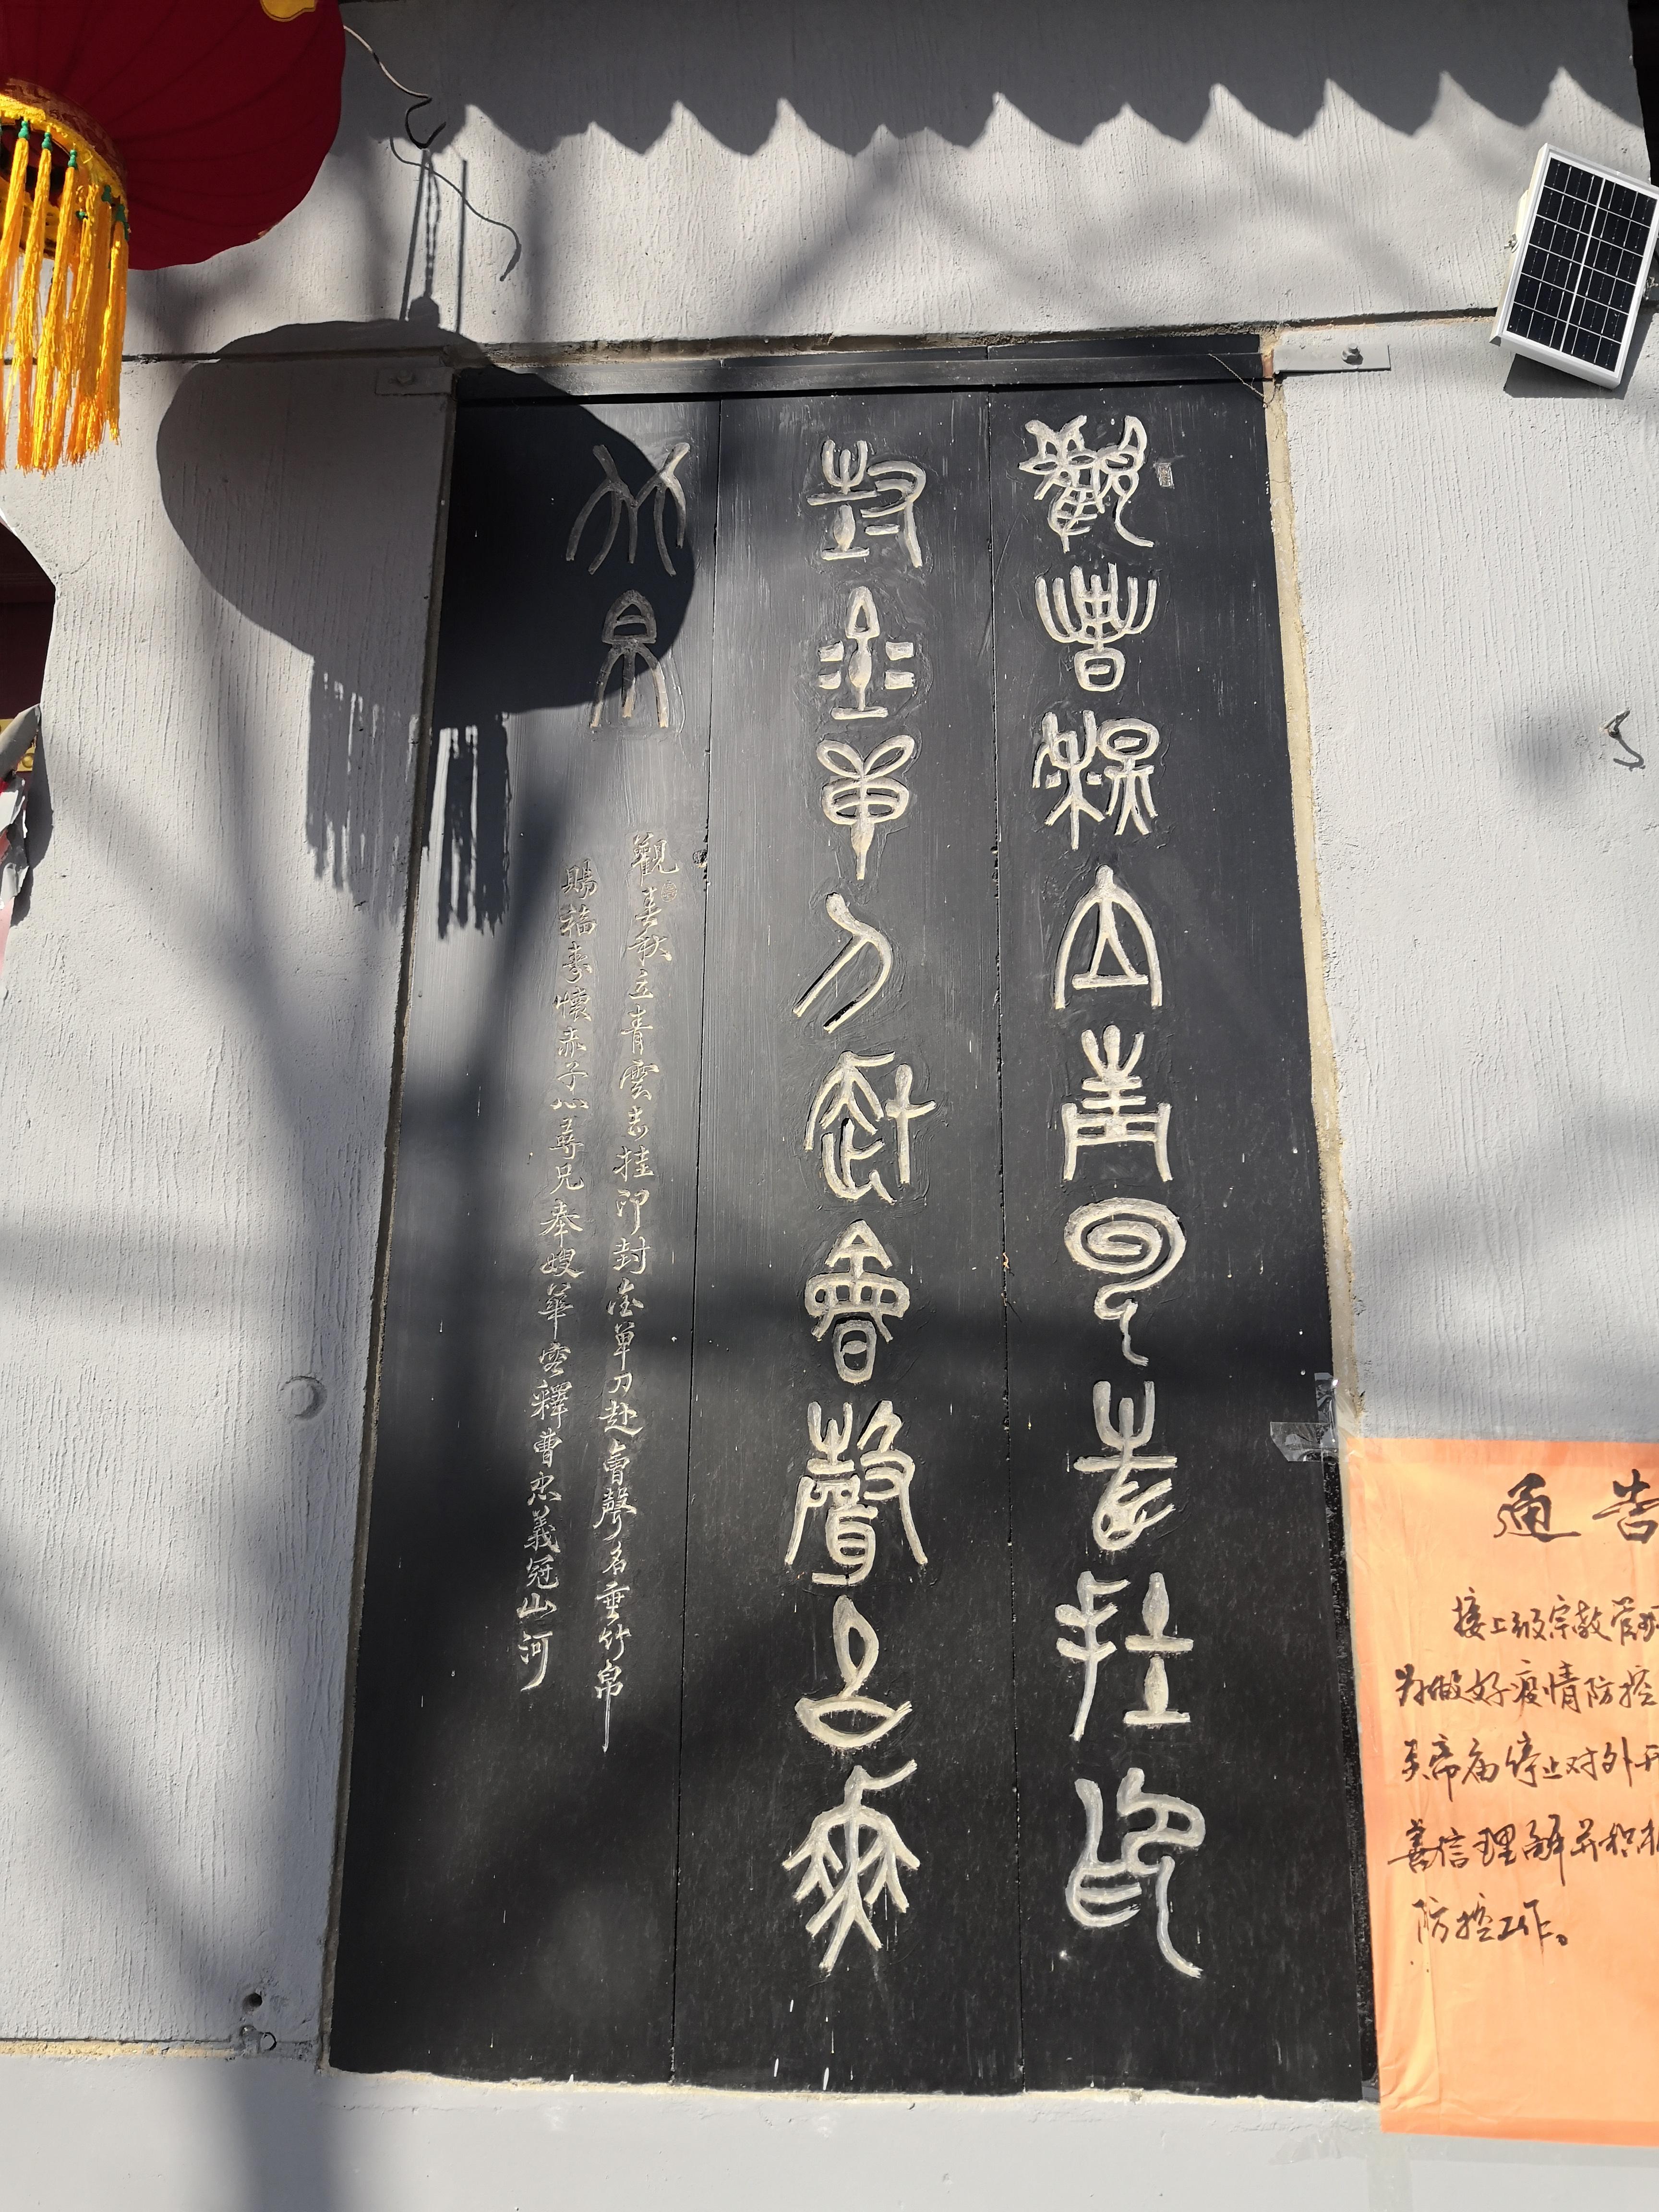 觀春秋立青雲志挂印
封金單刀赴會聲名垂
竹帛
觀春秋立青雲志挂印封金單刀赴會聲名垂竹帛
賜福壽懷赤子心尋兄奉嫂華容釋曹忠義冠山河
通告
接上级宗教管
为做好疫情防控
关帝庙停止对外开
善信理解并积极
防控工作。